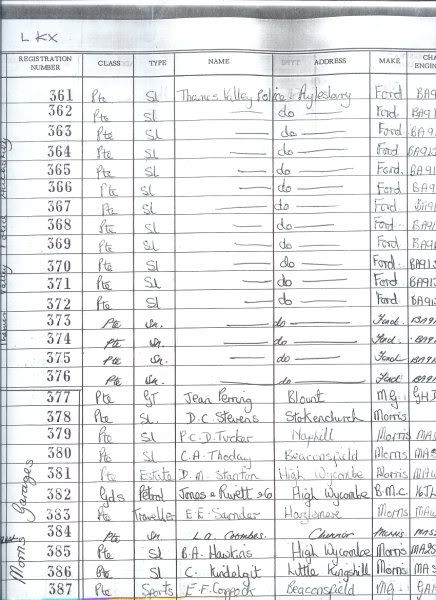 L KX
REGISTRATION NUMBER CLASS TYPE NAME ADDRESS MAKE CHA ENGIN
361 Pte Sl Thames Valley Police Aylesbury Ford BA91
362 Pte Sl — do — Ford BA91
363 Pte Sl — do — Ford BA91
364 Pte Sl — do — Ford BA913
365 Pte Sl — do — Ford. BA91
366 Pte Sl — do — Ford BA91
367 Pte Sl — do — Ford BA91
368 Pte Sl — do — Ford BA91
369 Pte Sl — do — Ford BA91
370 Pte Sl — do — Ford BA913
371 Pte Sl — do — Ford BA913
372 Pte Sl — do — Ford BA913
373 Pte — do — Ford. BA9
374 Pte — do — Ford. BA9
375 Pte — do — Ford BA9
376 Pte — do — Ford BA9
377 Pte GT Jean Perring Blount M.G. GHD
378 Pte SL. D.C. Stevens Stokenchurch Morris
379 Pte Sl P.C.D. Tucker Naphill Morris MAS
380 Pte Sl C.A. Thoday Beaconsfield Morris MAS
381 Pte Estate D.M. Stanton High Wycombe Morris MAW
382 Gds Petrol Jones & High Wycombe B.M.C. 16Th
383 Pte Traveller E.E. Hazlemere Morris MAW
384 Pte L.A. Coombes. Chinnor Morris MAS
385 Pte Sl B.A. Hawkins High Wycombe Morris MA2S
386 Pte SL C. Little Kingshill Morris MAS
387 Pte Sports E.F. Coppock Beaconsfield M.G. GAN
Thames Valley Police Authority
Morris Garages